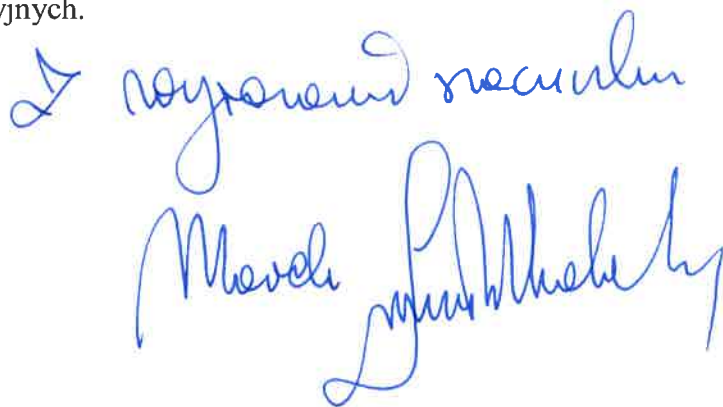 yjnych.
Z wyrazami szacunku
Marek